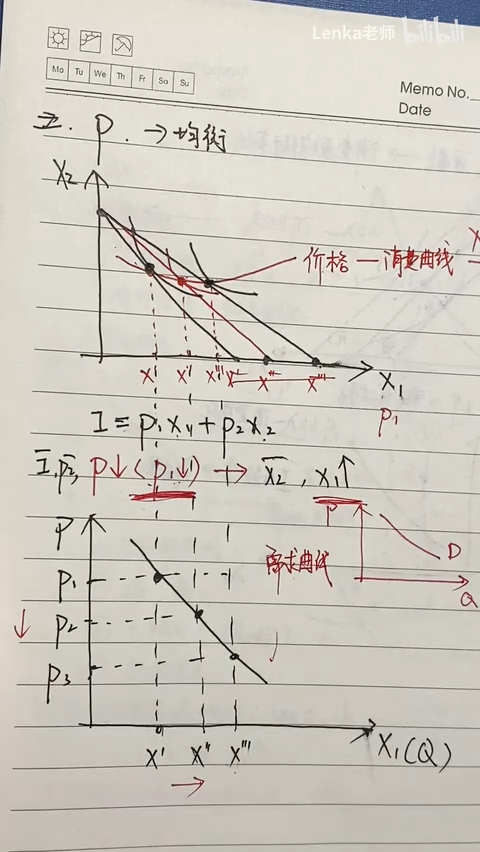 Lenka老师 bilibili
Mo Tu We Th Fr Sa Su
Memo No.
Date
三. P. → 均衡
X₂
价格—消费曲线
X' X'' X''' X'' X''' X₁
P₁
I = P₁X₁ + P₂X₂
Ī, P̄₂, P↓(P₁↓) → X̄₂, X₁↑
P
需求曲线
D
Q
P
P₁
↓ P₂
P₃
X' X'' X''' X₁(Q)
→